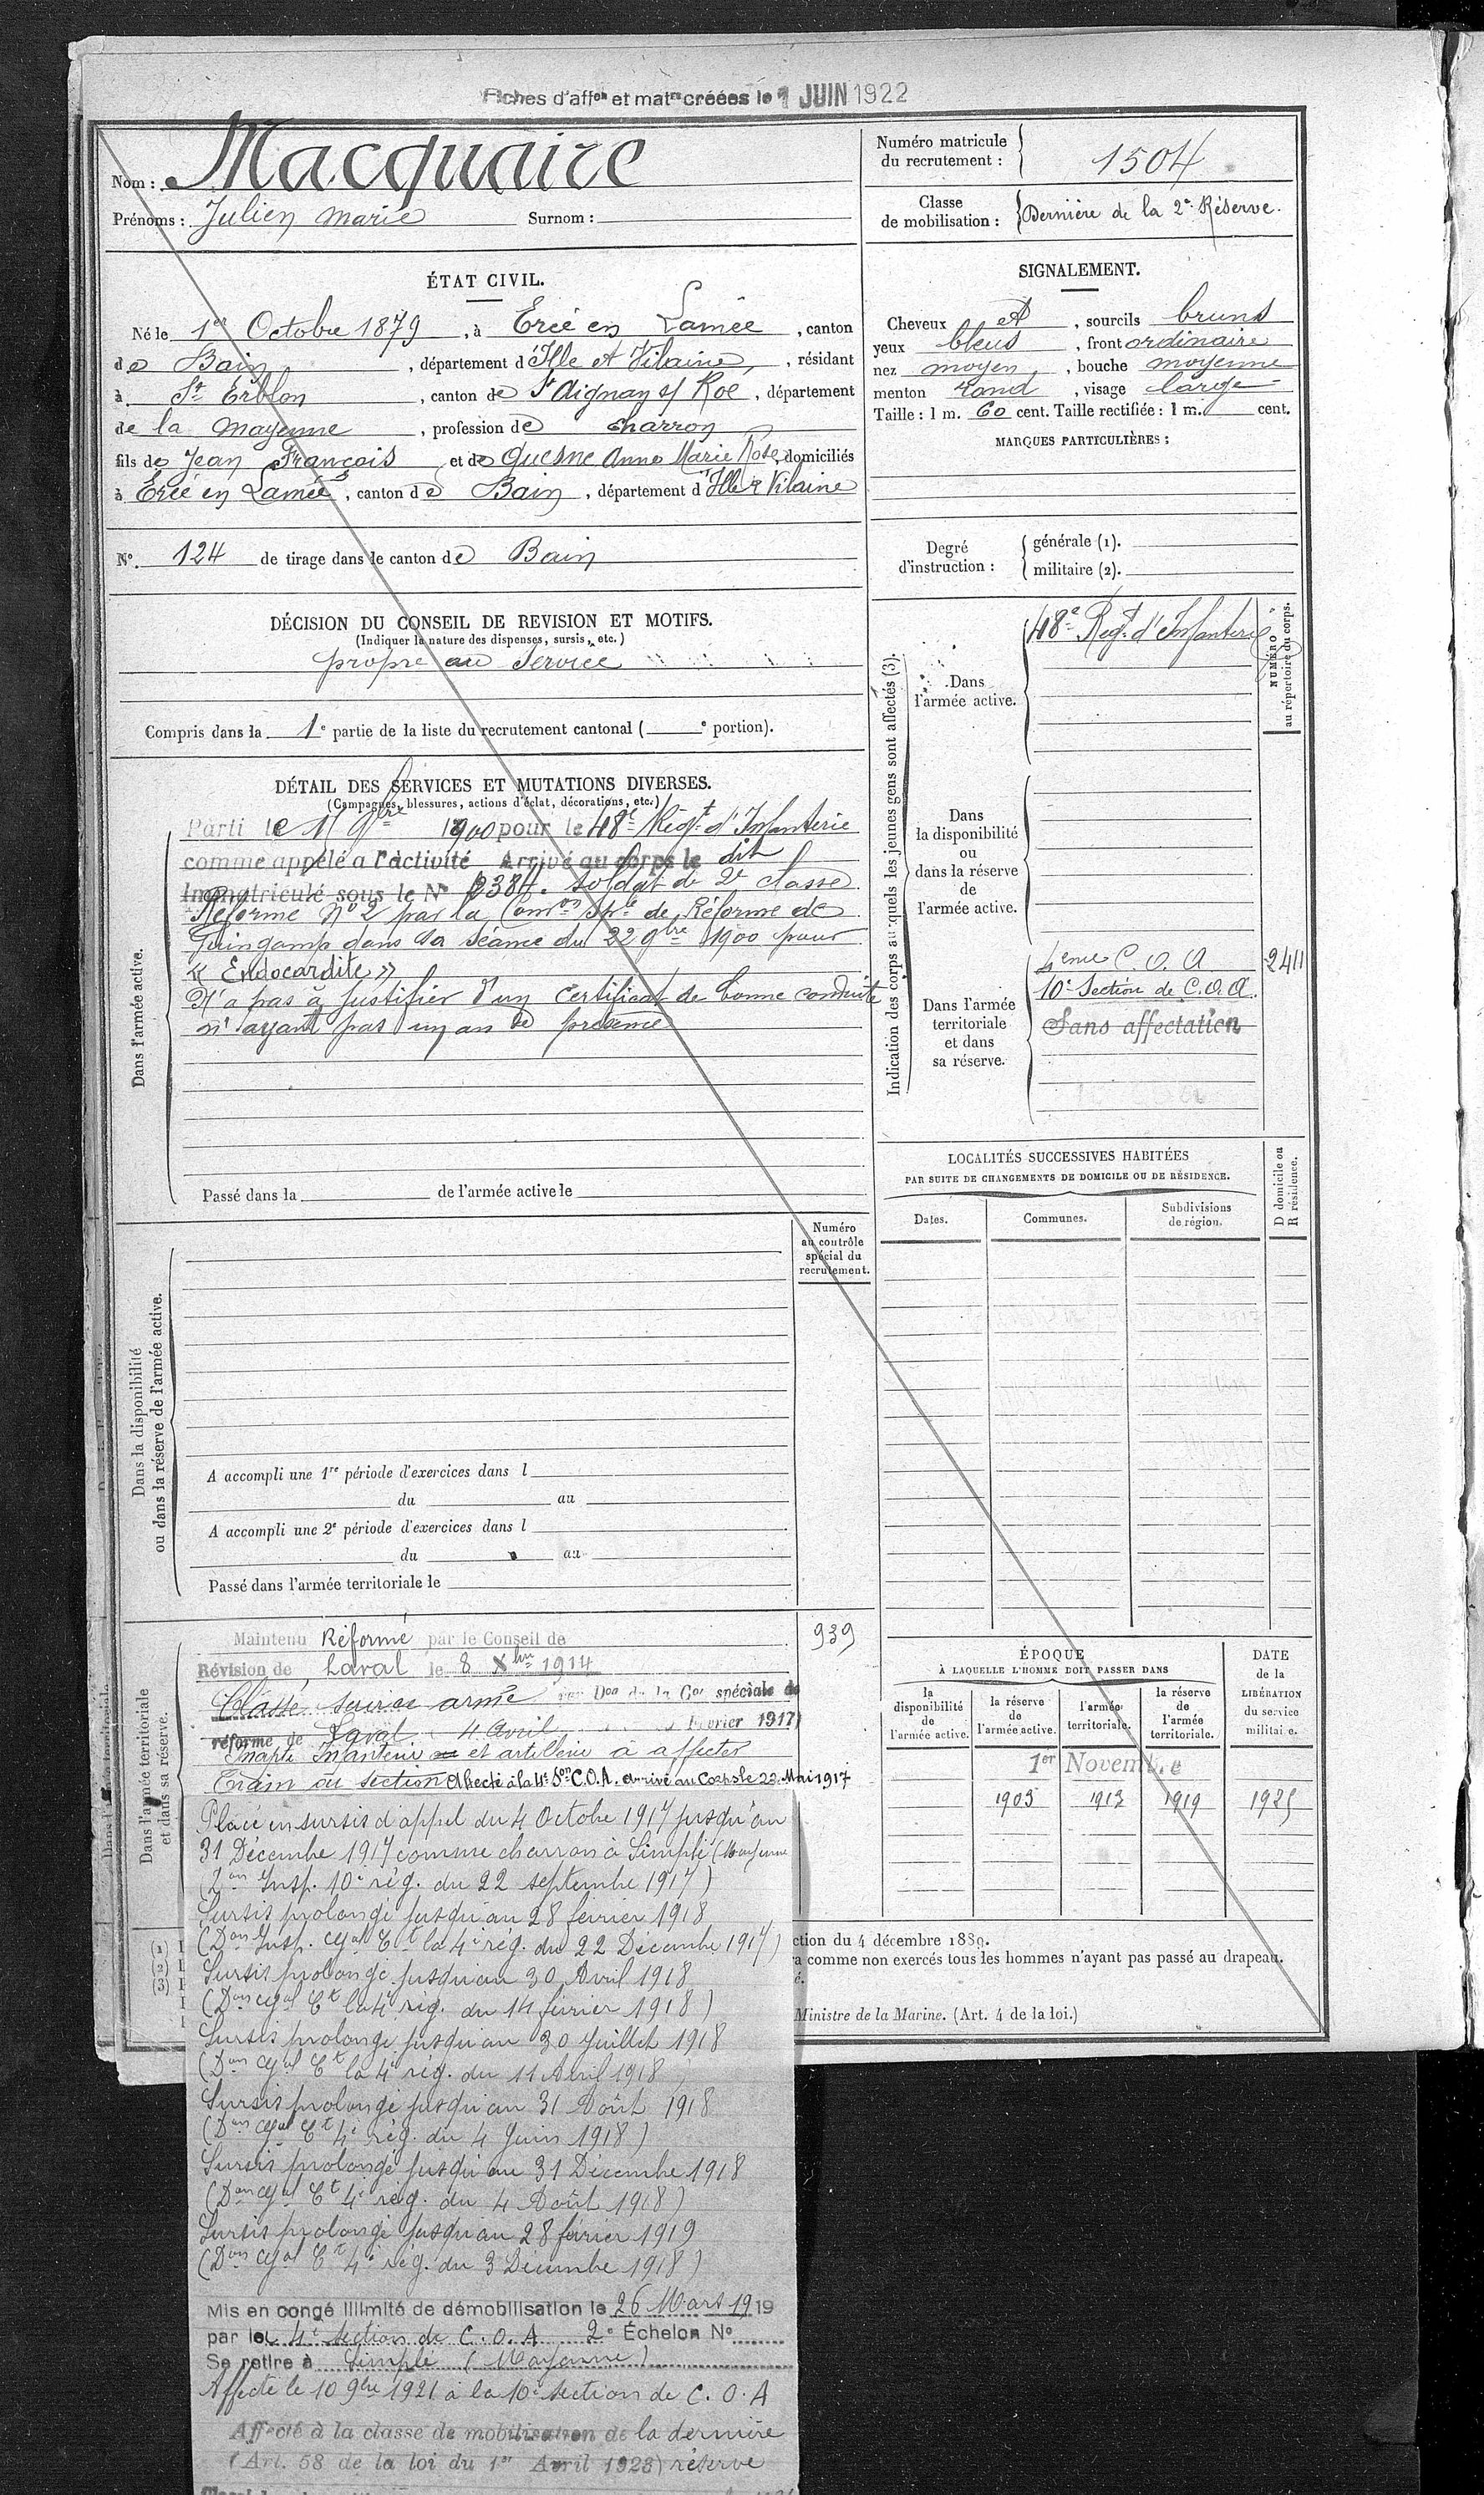 Fiches d'affon et matre créées le 1 JUIN 1922
Nom : Macquaire
Prénoms : Julien Marie Surnom :
Numéro matricule du recrutement : 1504
Classe de mobilisation : Dernière de la 2e Réserve.
ÉTAT CIVIL.
Né le 1er Octobre 1879, à Ercé en Lamée, canton
de Bain, département d'Ille et Vilaine, résidant
à St Erblon, canton de St Aignan s/ Roë, département
de la Mayenne, profession de charron
fils de Jean François et de Quesne Anne Marie Rose, domiciliés
à Ercé en Lamée, canton de Bain, département d'Ille & Vilaine
SIGNALEMENT.
Cheveux et, sourcils bruns
yeux bleus, front ordinaire
nez moyen, bouche moyenne
menton rond, visage large
Taille : 1 m. 60 cent. Taille rectifiée : 1 m. cent.
MARQUES PARTICULIÈRES :
N° 124 de tirage dans le canton de Bain
Degré d'instruction : générale (1).
militaire (2).
DÉCISION DU CONSEIL DE REVISION ET MOTIFS.
(Indiquer la nature des dispenses, sursis, etc.)
propre au service
Compris dans la 1e partie de la liste du recrutement cantonal ( e portion).
DÉTAIL DES SERVICES ET MUTATIONS DIVERSES.
(Campagnes, blessures, actions d'éclat, décorations, etc.)
Dans l'armée active.
Parti le 11 9bre 1900 pour le 48e Régt d'Infanterie
comme appelé a l'activité Arrivé au corps le dit
Immatriculé sous le N° 2384. soldat de 2e classe
Réformé N° 2 par la Comon sple de Réforme de
Guingamp dans sa séance du 22 9bre 1900 pour
« Endocardite »
N'a pas à justifier d'un certificat de bonne conduite
n'ayant pas un an de présence
Passé dans la de l'armée active le
Indication des corps auxquels les jeunes gens sont affectés (3).
NUMÉRO au répertoire du corps.
Dans l'armée active.
48e Régt d'Infanterie
Dans la disponibilité ou dans la réserve de l'armée active.
Dans l'armée territoriale et dans sa réserve.
4eme C.O.A 2411
10e Section de C.O.A.
Sans affectation
LOCALITÉS SUCCESSIVES HABITÉES
PAR SUITE DE CHANGEMENTS DE DOMICILE OU DE RÉSIDENCE.
Dates. Communes. Subdivisions de région. D domicile ou R résidence.
Dans la disponibilité ou dans la réserve de l'armée active.
Numéro au contrôle spécial du recrutement.
A accompli une 1re période d'exercices dans l
du au
A accompli une 2e période d'exercices dans l
du au
Passé dans l'armée territoriale le
Dans l'armée territoriale et dans sa réserve.
Maintenu Réformé par le Conseil de 939
Révision de Laval le 8 Xbre 1914
Classé service armé par Don de la Con spéciale de
réforme de Laval 4 Avril Février 1917)
Inapte Infanterie et artillerie à affecter
Train ou section Affecté à la 4e Son C.O.A. arrivé au Corps le 23 Mai 1917
Placé en sursis d'appel du 4 Octobre 1917 jusqu'au
31 Décembre 1917 comme charron à Simplé (Mayenne
(Don Insp. 10e rég. du 22 septembre 1917)
Sursis prolongé jusqu'au 28 février 1918
(Don Insp. Gal Ct la 4e rég. du 22 Décembre 1917)
Sursis prolongé jusqu'au 30 Avril 1918
(Don Gal Ct la 4e rég. du 14 février 1918)
Sursis prolongé jusqu'au 30 Juillet 1918
(Don Gal Ct la 4e rég. du 11 Avril 1918
Sursis prolongé jusqu'au 31 Août 1918
(Don Gal Ct 4e rég. du 4 Juin 1918)
Sursis prolongé jusqu'au 31 Décembre 1918
(Don Gal Ct 4e rég. du 4 Août 1918)
Sursis prolongé jusqu'au 28 février 1919
(Don Gal Ct 4e rég. du 3 Décembre 1918)
Mis en congé illimité de démobilisation le 26 Mars 1919
par la 4e section de C.O.A 2e Échelon N°
Se retire à Simplé (Mayenne)
Affecté le 10 9bre 1921 à la 10e section de C.O.A
Affecté à la classe de mobilisation de la dernière
(Art. 58 de la loi du 1er Avril 1923) réserve
ÉPOQUE
À LAQUELLE L'HOMME DOIT PASSER DANS
la disponibilité de l'armée active.
la réserve de l'armée active.
l'armée territoriale.
la réserve de l'armée territoriale.
DATE de la LIBÉRATION du service militaire.
1er Novembre
1903 1913 1919 1925
(1)
(2)
(3)
ction du 4 décembre 1889.
ra comme non exercés tous les hommes n'ayant pas passé au drapeau.
é.
Ministre de la Marine. (Art. 4 de la loi.)